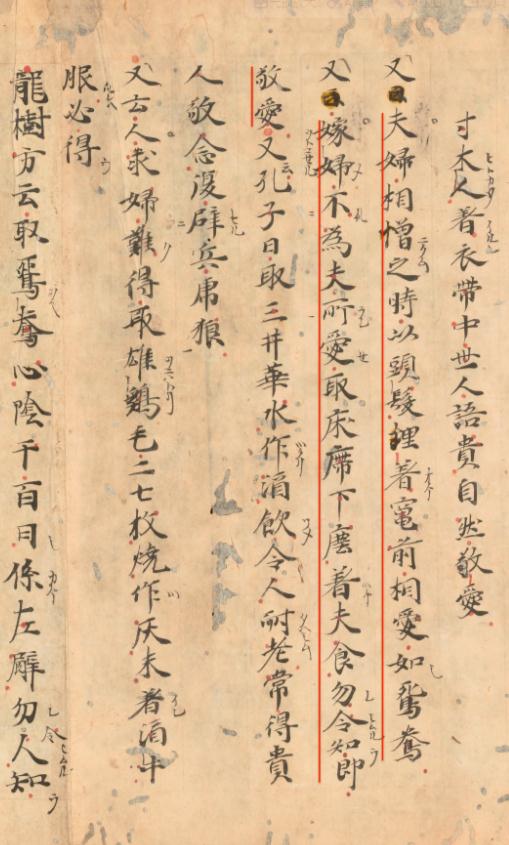 寸木人著衣帶中世人語貴自然敬愛
又云夫婦相憎之時以頭髮埋著竈前相愛如鴛鴦
又云嫁婦不為夫所愛取床席下塵著夫食勿令知即
敬愛又孔子曰取三井華水作酒飲令人耐老常得貴
人敬念復辟兵虎狼
又云人求婦難得取雄鷄毛二七枚燒作灰末著酒中
服必得
龍樹方云取鴛鴦心陰干百日係左臂勿人知